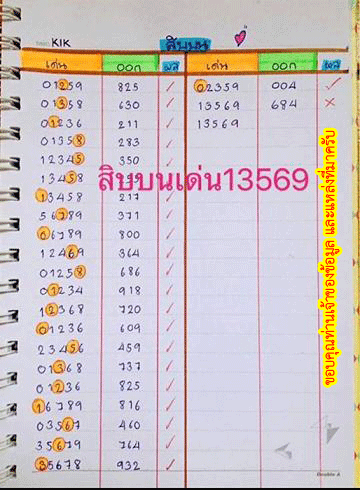 KIK
สิบบน
เด่น ออก ผล เด่น ออก ผล
01259 825 ✓ 02359 004 ✓
01358 630 ✓ 13569 684 ✗
01236 211 ✓ 13569
01358 283 ✓
12345 350
สิบบนเด่น13569
13458 217
56789 371 ✓
06789 800 ✓
12469 364 ✓
01258 686 ✓
01234 918 ✓
12368 720 ✓
01236 609 ✓
23456 459 ✓
01368 737 ✓
01236 825 ✓
16789 816 ✓
03567 460 ✓
35679 764 ✓
35678 932 ✓
ขอบคุณท่านเจ้าของข้อมูล และแหล่งที่มาครับ
Double A